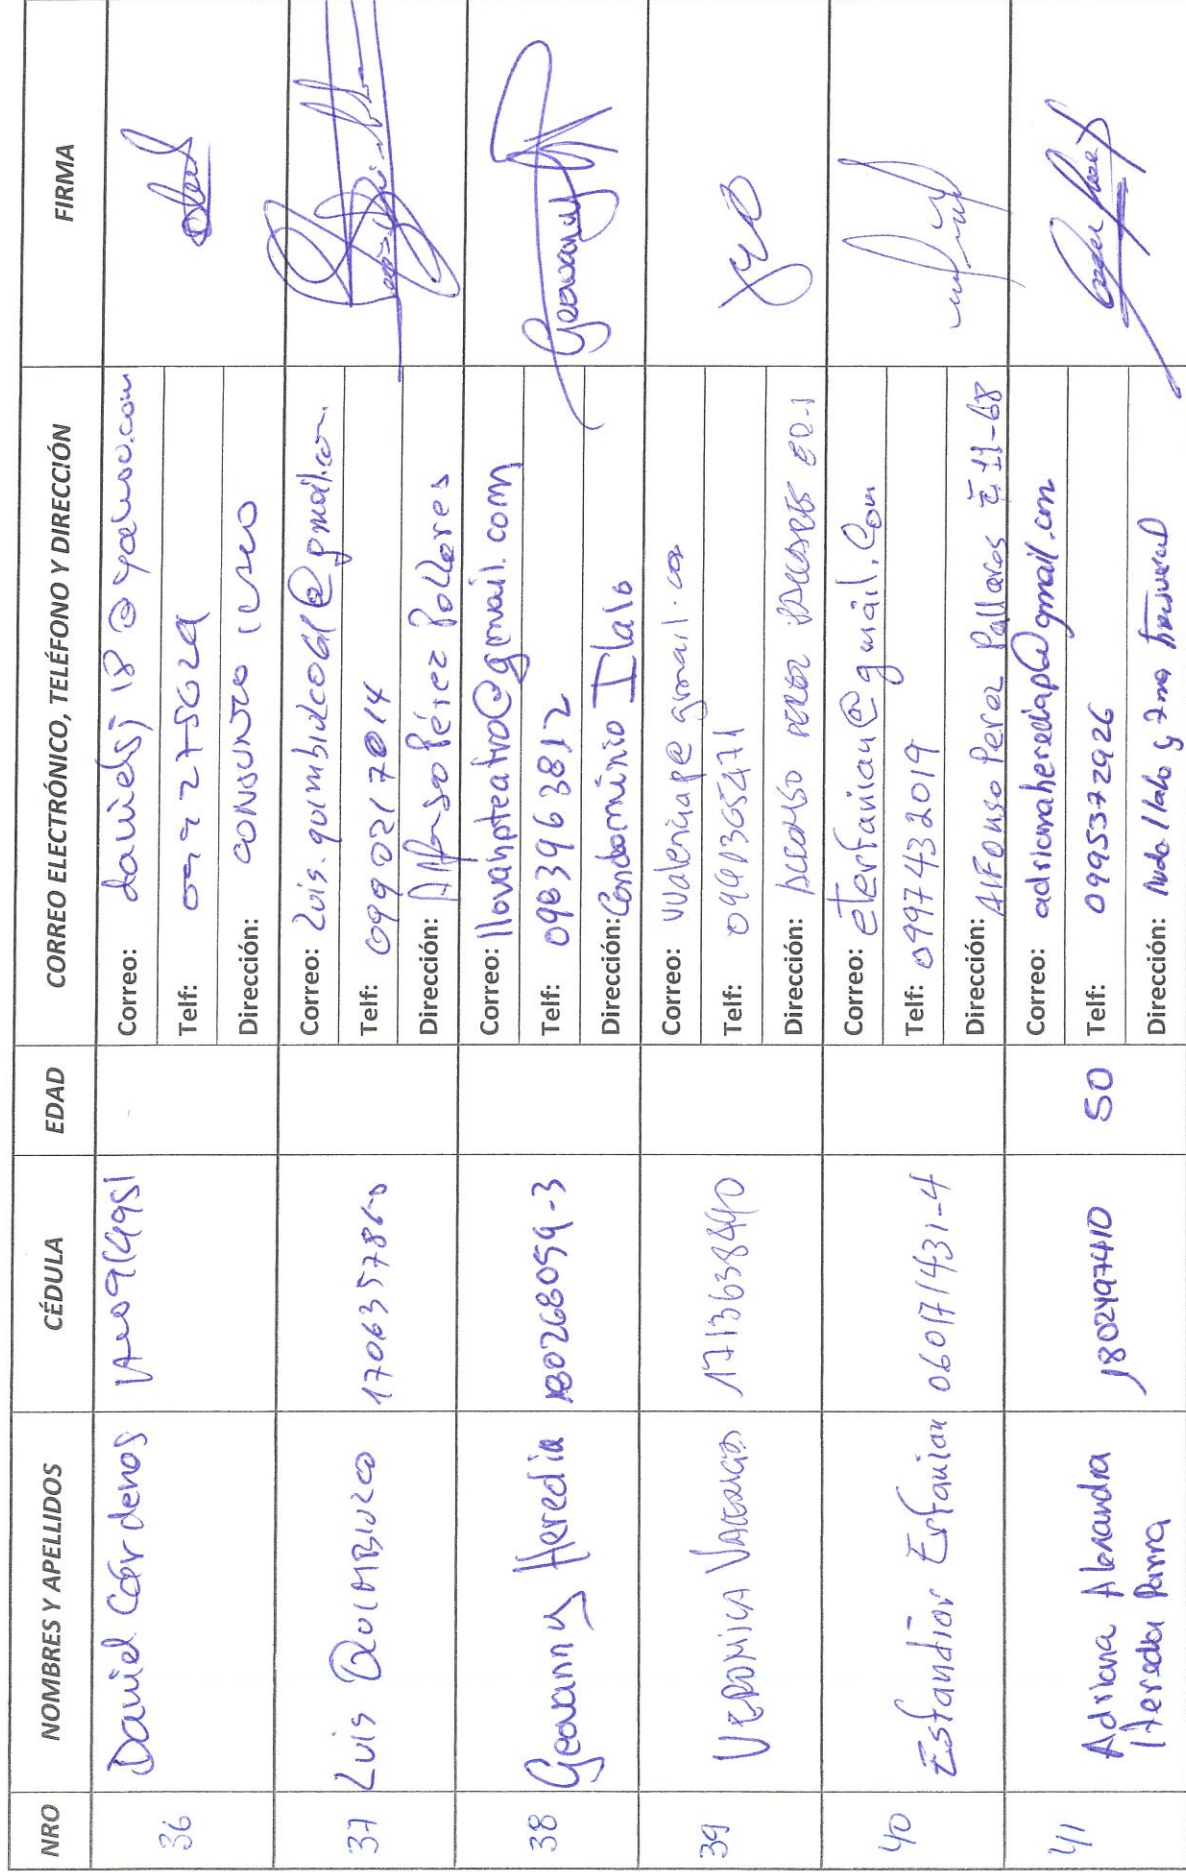 NRO NOMBRES Y APELLIDOS CÉDULA EDAD CORREO ELECTRÓNICO, TELÉFONO Y DIRECCIÓN FIRMA
36 Daniel Cárdenas
Correo: danielsj18@yahoo.com
Telf:
Dirección: CONJUNTO
37 Luis QUIMBIULCO
Correo: luis.quimbiulco61@gmail.com
Telf: 0990217014
Dirección: Alfonso Pérez Pallares
38 Geovanny Heredia 180268059-3
Correo: llovahpteatro@gmail.com
Telf: 0983963812
Dirección: Condominio Ilalo
39 VERONICA VALENCIA 1713638440
Correo: vvalenciape@gmail.com
Telf:
Dirección:
40 Esfandiar Erfanian 060171431-4
Correo: eterfanian@gmail.com
Telf: 0997432019
Dirección: Alfonso Perez Pallares E 11-68
41 Adriana Alexandra 1802497410 50
Heredia Parra
Correo: adrianaherediapa@gmail.com
Telf: 0995372926
Dirección: y 7ma transversal